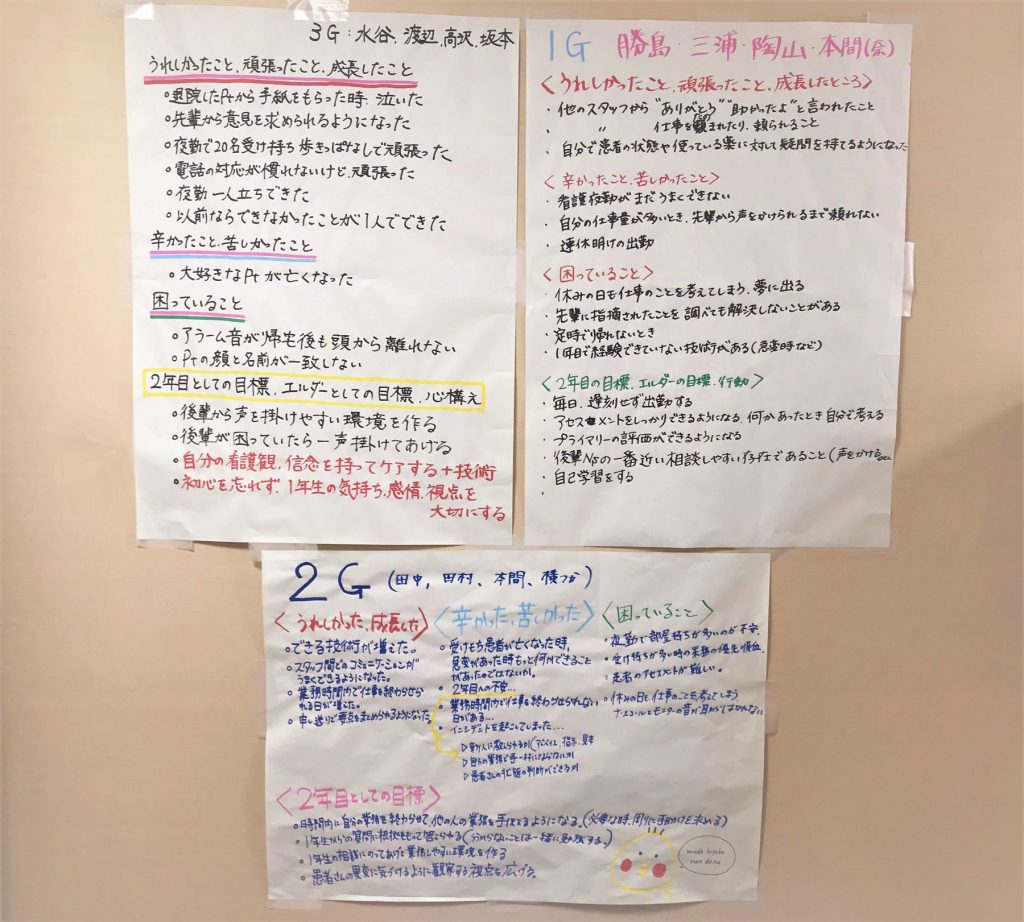 3G:水谷、渡辺、高沢、坂本
うれしかったこと、頑張ったこと、成長したこと
○退院したPtから手紙をもらった時、泣いた
○先輩から意見を求められるようになった
○夜勤で20名受け持ち歩きっぱなしで頑張った
○電話の対応が慣れないけど、頑張った
○夜勤一人立ちできた
○以前ならできなかったことが1人でできた
辛かったこと、苦しかったこと
○大好きなPtが亡くなった
困っていること
○アラーム音が帰宅後も頭から離れない
○Ptの顔と名前が一致しない
2年目としての目標、エルダーとしての目標、心構え
○後輩から声を掛けやすい環境を作る
○後輩が困っていたら一声掛けてあげる
○自分の看護観、信念を持ってケアする+技術
○初心を忘れず、1年生の気持ち、感情、視点を
大切にする
1G 勝島・三浦・陶山・本間(奈)
<うれしかったこと、頑張ったこと、成長したところ>
・他のスタッフから"ありがとう""助かったよ"と言われたこと
・ 〃 仕事を頼まれたり、頼られること
・自分で患者の状態や使っている薬に対して疑問を持てるようになった
<辛かったこと、苦しかったこと>
・看護夜勤がまだうまくできない
・自分の仕事量が多いとき、先輩から声をかけられるまで頼れない
・連休明けの出勤
<困っていること>
・休みの日も仕事のことを考えてしまう、夢に出る
・先輩に指摘されたことを調べても解決しないことがある
・定時で帰れないとき
・1年目で経験できていない技術がある(急変時など)
<2年目の目標、エルダーの目標、行動>
・毎日、遅刻せず出勤する
・アセスメントをしっかりできるようになる、何かあったとき自分で考える
・プライマリーの評価ができるようになる
・後輩Nsの一番近い相談しやすい存在であること(声をかける
・自己学習をする
・
2G (田中,田村、本間、横つか)
<うれしかった、成長した>
○できる技術が増えた。
○スタッフ間でのコミュニケーションが
うまくできるようになった。
○業務時間内で仕事を終わらせら
れる日が増えた。
○申し送りで要点をまとめられるようになった。
<辛かった、苦しかった>
・受けもち患者が亡くなった時、
急変があった時もっと何かできること
があったのではないか。
・2年目への不安…
・業務時間内で仕事を終わらせられない
日がある…
・インシデントを起こしてしまった…
▷新人に教えられるか(アドバイス、指示、見本
▷自分の業務で手一杯にならないか
▷患者さんの状態の判断ができるか
<困っていること>
・夜勤で部屋持ちが多いのが不安、
・受け持ちが多い時の業務の優先順位、
・患者のアセスメントが難しい。
・休みの日も仕事のことを考えてしまう
ナースコールとモニターの音が耳からはなれない
<2年目としての目標>
○時間内に自分の業務を終わらせて、他の人の業務を手伝えるようになる。(必要な時、周りに手助けを求める)
○1年生からの質問に根拠をもって答えられる(分からないことは一緒に勉強する。)
○1年生の相談にのってあげて業務しやすい環境を作る
○患者さんの異変に気づけるように観察する視点を広げる。
mada hiyoko
nan desu